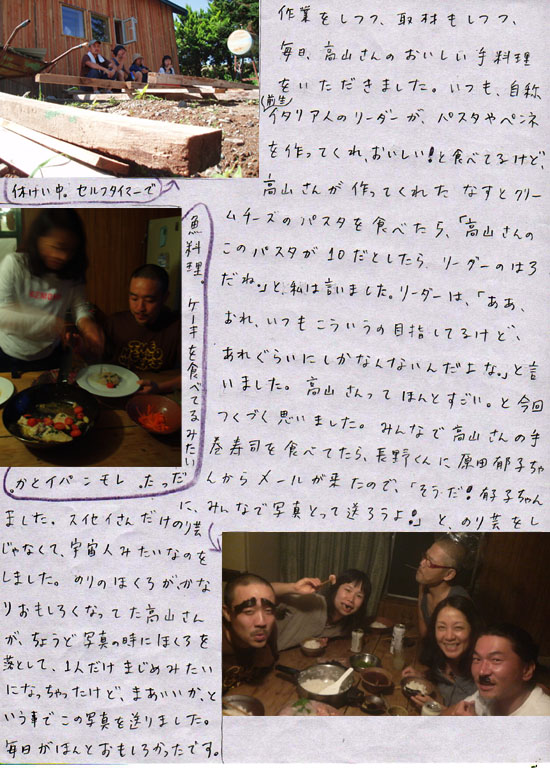 作業をしつつ、取材もしつつ、
毎日、高山さんのおいしい手料理
をいただきました。いつも、自称
(前生)
イタリア人のリーダーが、パスタやペンネ
を作ってくれ、おいしい!と食べてるけど、
高山さんが作ってくれたなすとクリー
ムチーズのパスタを食べたら、「高山さんの
このパスタが10だとしたら、リーダーのは3
だね。」と、私は言いました。リーダーは、「ああ、
おれ、いつもこういうの目指してるけど、
あれぐらいにしかなんないんだよな。」と言
いました。高山さんってほんとすごい。と今回
つくづく思いました。みんなで高山さんの手
巻寿司を食べてたら、長野くんに原田郁子ちゃ
んからメールが来たので、「そうだ!郁子ちゃん
に、みんなで写真とって送ろうよ!」と、のり芸をし
ました。スイセイさんだけのり芸
じゃなくて、宇宙人みたいなのを
しました。のりのほくろが、かな
りおもしろくなってた高山さん
が、ちょうど写真の時にほくろを
落として、1人だけまじめみたい
になっちゃったけど、まあいいか、と
いう事でこの写真を送りました。
毎日がほんとおもしろかったです。
休けい中。セルフタイマーで
魚料理。ケーキを食べてるみたい
だった。レモンパイとか